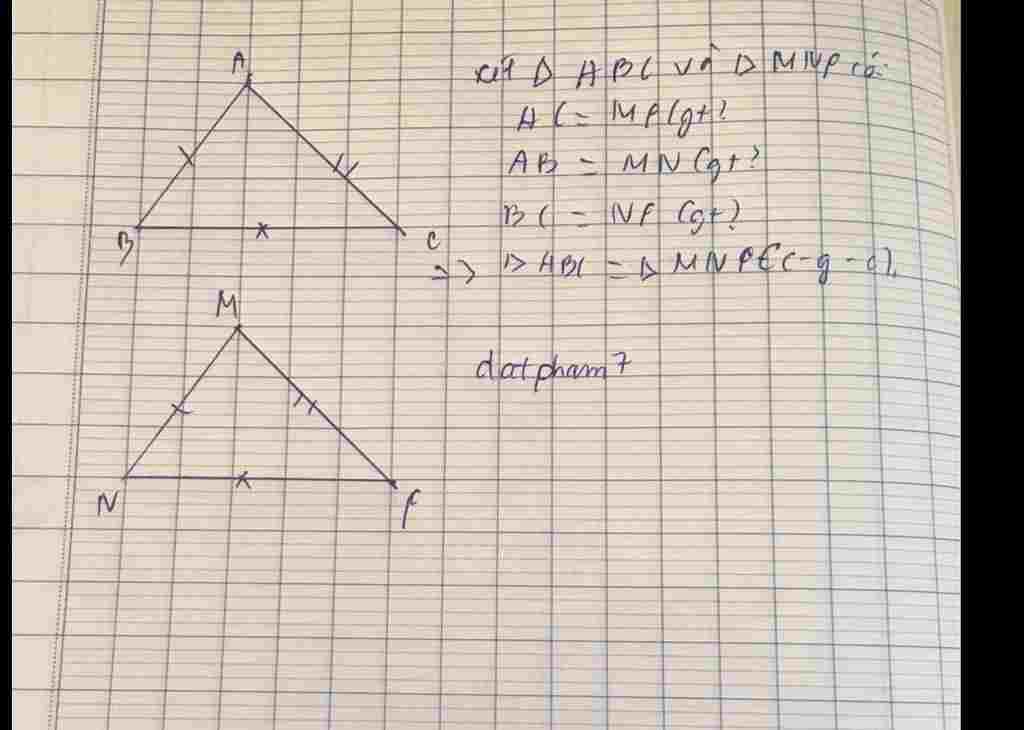 A
xét Δ ABC và Δ MNP có:
AC = MP (gt)
AB = MN (gt)
B
C
BC = NP (gt)
=> Δ ABC = Δ MNP (c-g-c).
M
datpham7
N
P